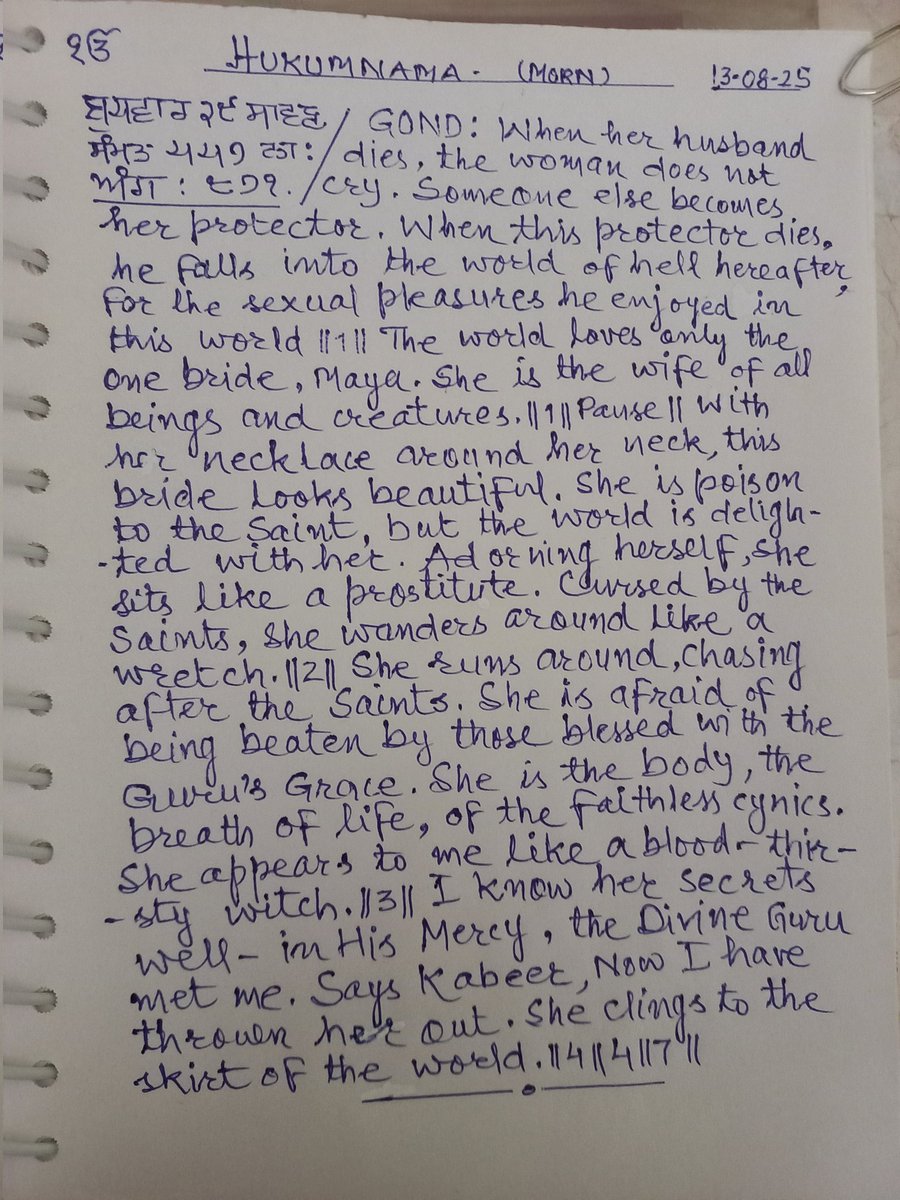 ੴ HUKUMNAMA - (MORN) 13-08-25
ਬੁਧਵਾਰ ੨੯ ਸਾਵਣ / GOND: When her husband
ਸੰਮਤ ੫੫੭ ਨਸ: / dies, the woman does not
ਅੰਗ: ੮੭੧. / cry. Someone else becomes
her protector. When this protector dies.
he falls into the world of hell hereafter,
for the sexual pleasures he enjoyed in
this world ||1|| The world loves only the
one bride, Maya. She is the wife of all
beings and creatures. ||1|| Pause || With
her necklace around her neck, this
bride looks beautiful. She is poison
to the Saint, but the world is deligh-
-ted with her. Adorning herself, she
sits like a prostitute. Cursed by the
Saints, she wanders around like a
wretch. ||2|| She runs around, chasing
after the Saints. She is afraid of
being beaten by those blessed with the
Guru's Grace. She is the body, the
breath of life, of the faithless cynics.
She appears to me like a blood-thir-
-sty witch. ||3|| I know her secrets
well - in His Mercy, the Divine Guru
met me. Says Kabeer, Now I have
thrown her out. She clings to the
skirt of the world. ||4||4||7||